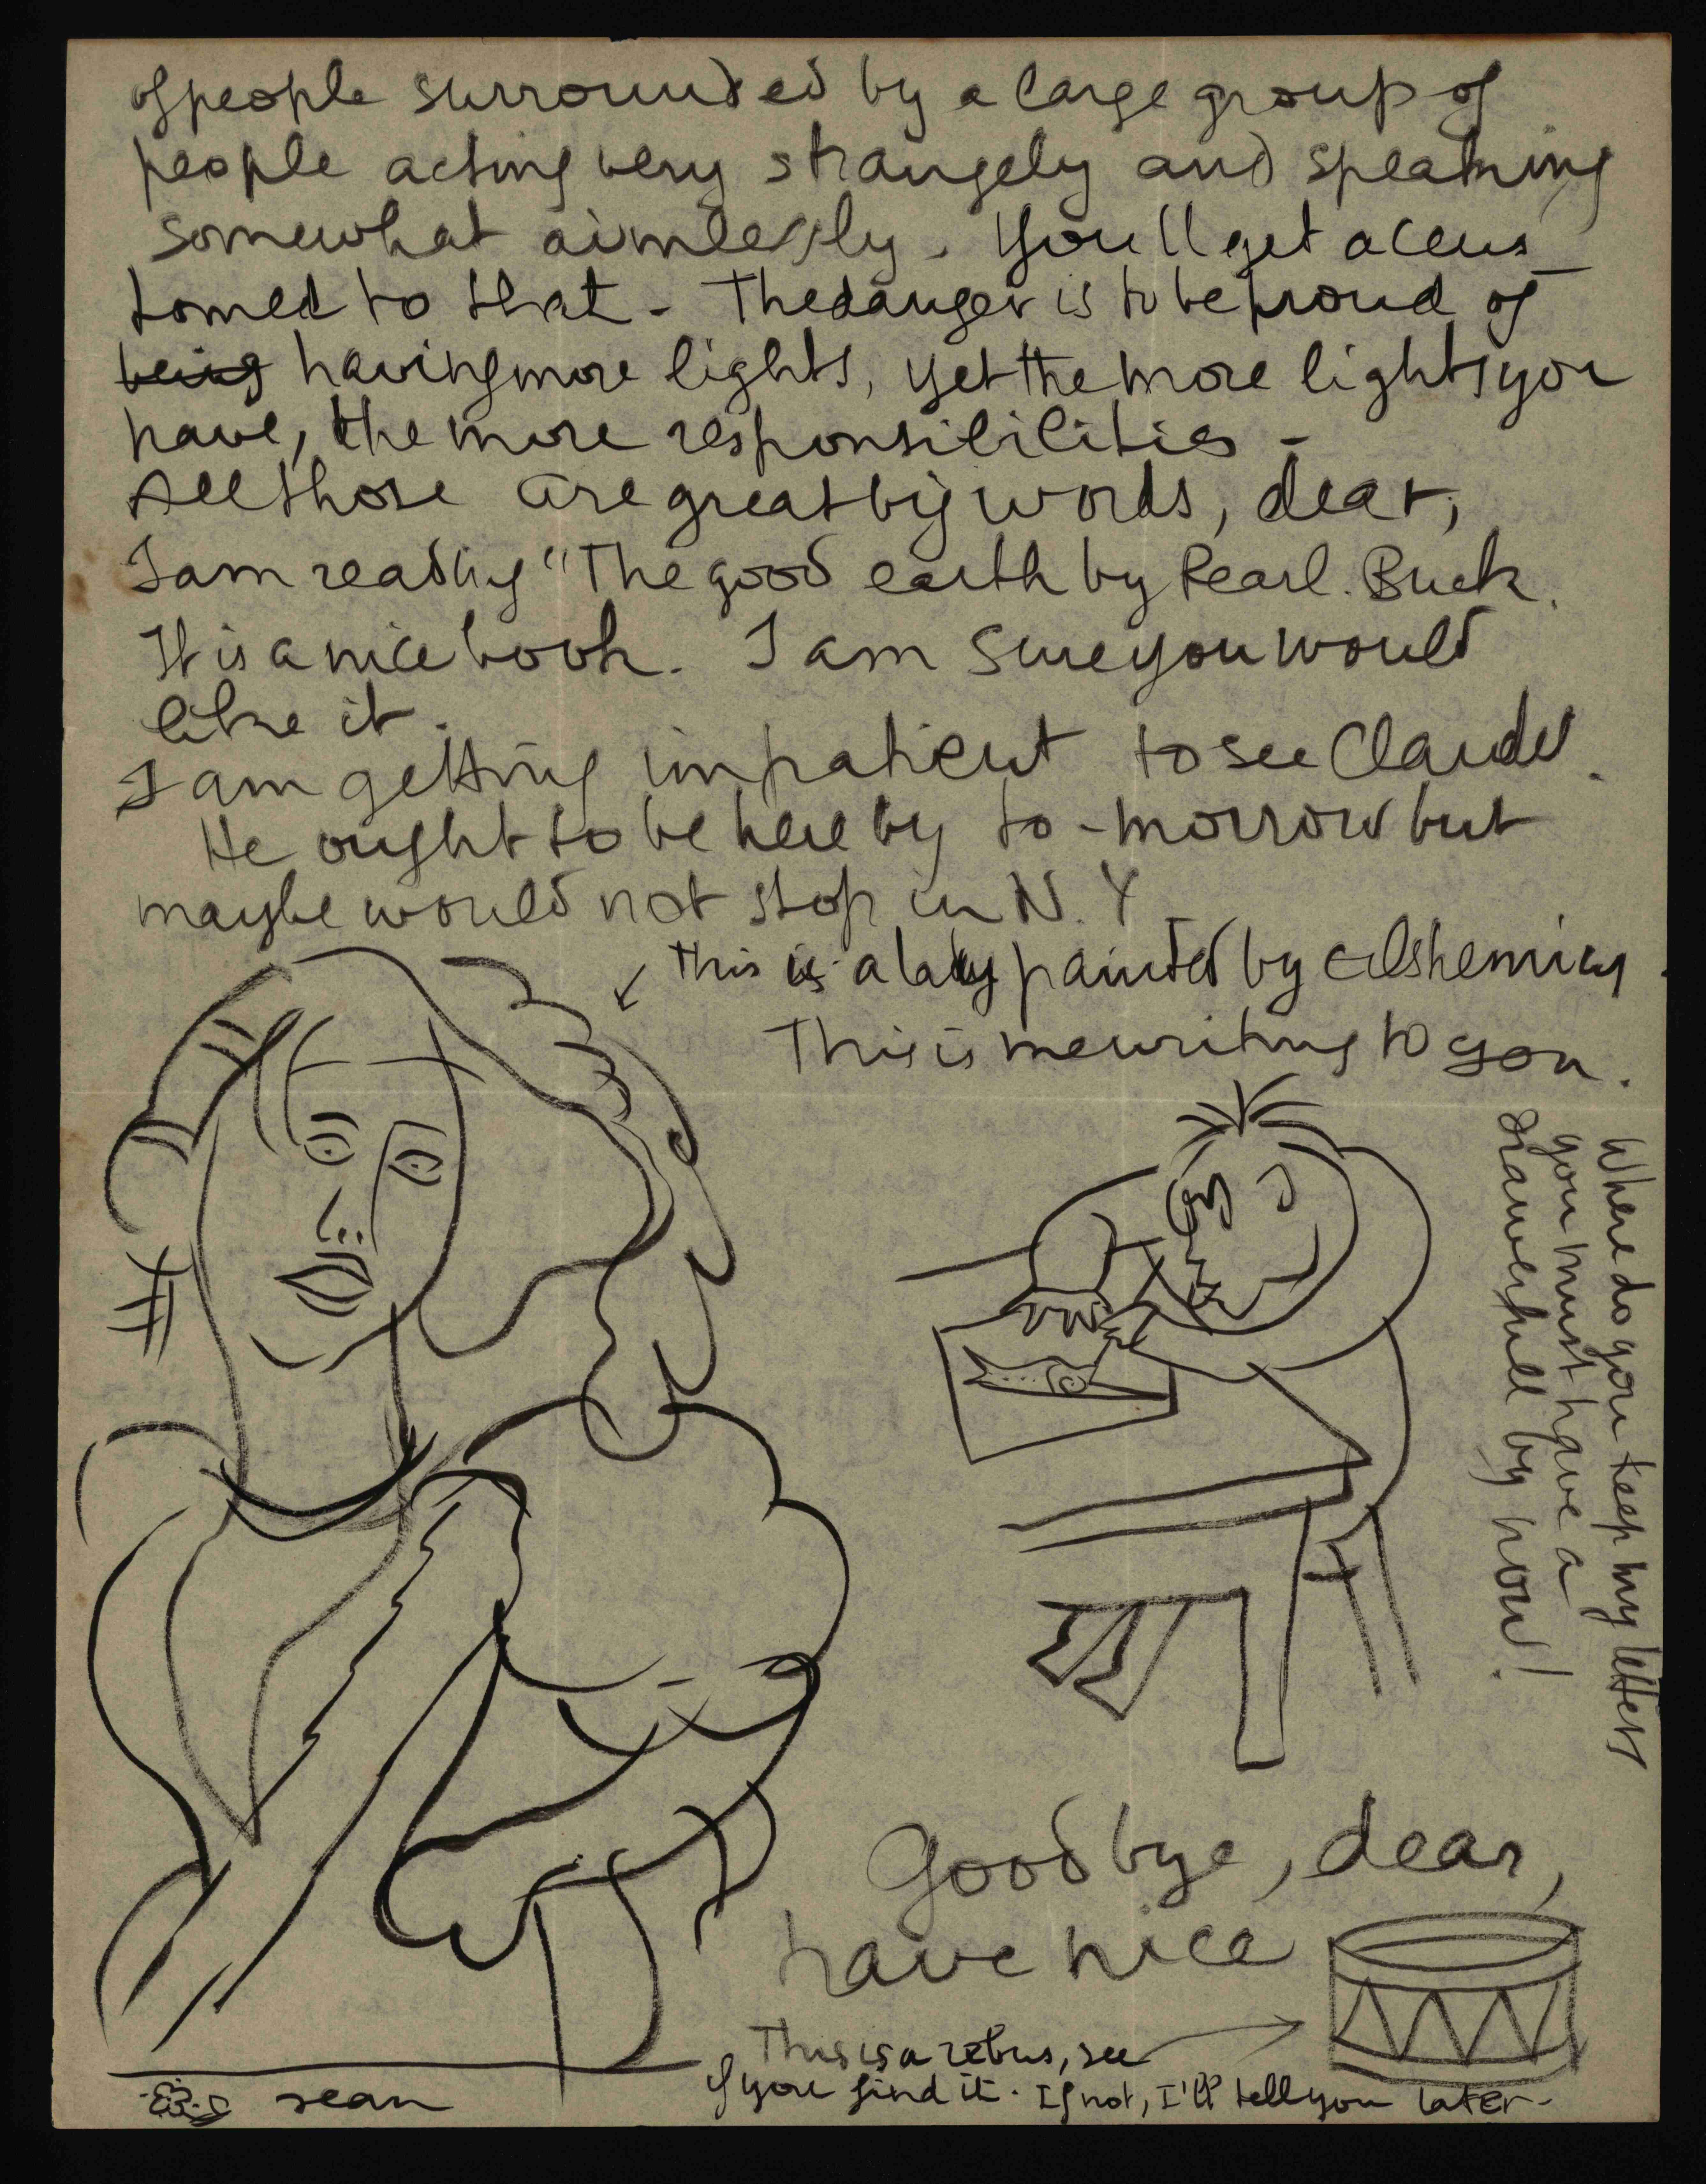 of people surrounded by a large group of
people acting very strangely and speaking
somewhat aimlessly. You'll get accus
tomed to that - The danger is to be proud of
being having more lights, yet the more lights you
have, the more responsibilities -
All those are great big words, dear,
I am reading "The good earth by Pearl. Buck.
It is a nice book. I am sure you would
like it.
I am getting impatient to see Claude.
He ought to be here by to-morrow but
maybe would not stop in N.Y
this is a lady painted by Eilshemius.
This is me writing to you.
Where do you keep my letters
you must have a
drawer full by now!
Goodbye, dear,
have nice
This is a rebus, see
if you find it. If not, I'll tell you later-
Jean